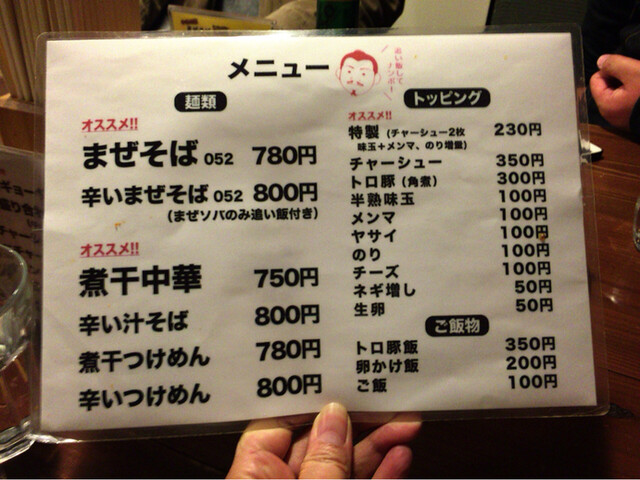 メニュー
追い飯して
ナンボー
麺類
オススメ!!
まぜそば 052 780円
辛いまぜそば 052 800円
(まぜソバのみ追い飯付き)
オススメ!!
煮干中華 750円
辛い汁そば 800円
煮干つけめん 780円
辛いつけめん 800円
トッピング
オススメ!!
特製 (チャーシュー2枚 230円
味玉+メンマ、のり増量)
チャーシュー 350円
トロ豚 (角煮) 300円
半熟味玉 100円
メンマ 100円
ヤサイ 100円
のり 100円
チーズ 100円
ネギ増し 50円
生卵 50円
ご飯物
トロ豚飯 350円
卵かけ飯 200円
ご飯 100円